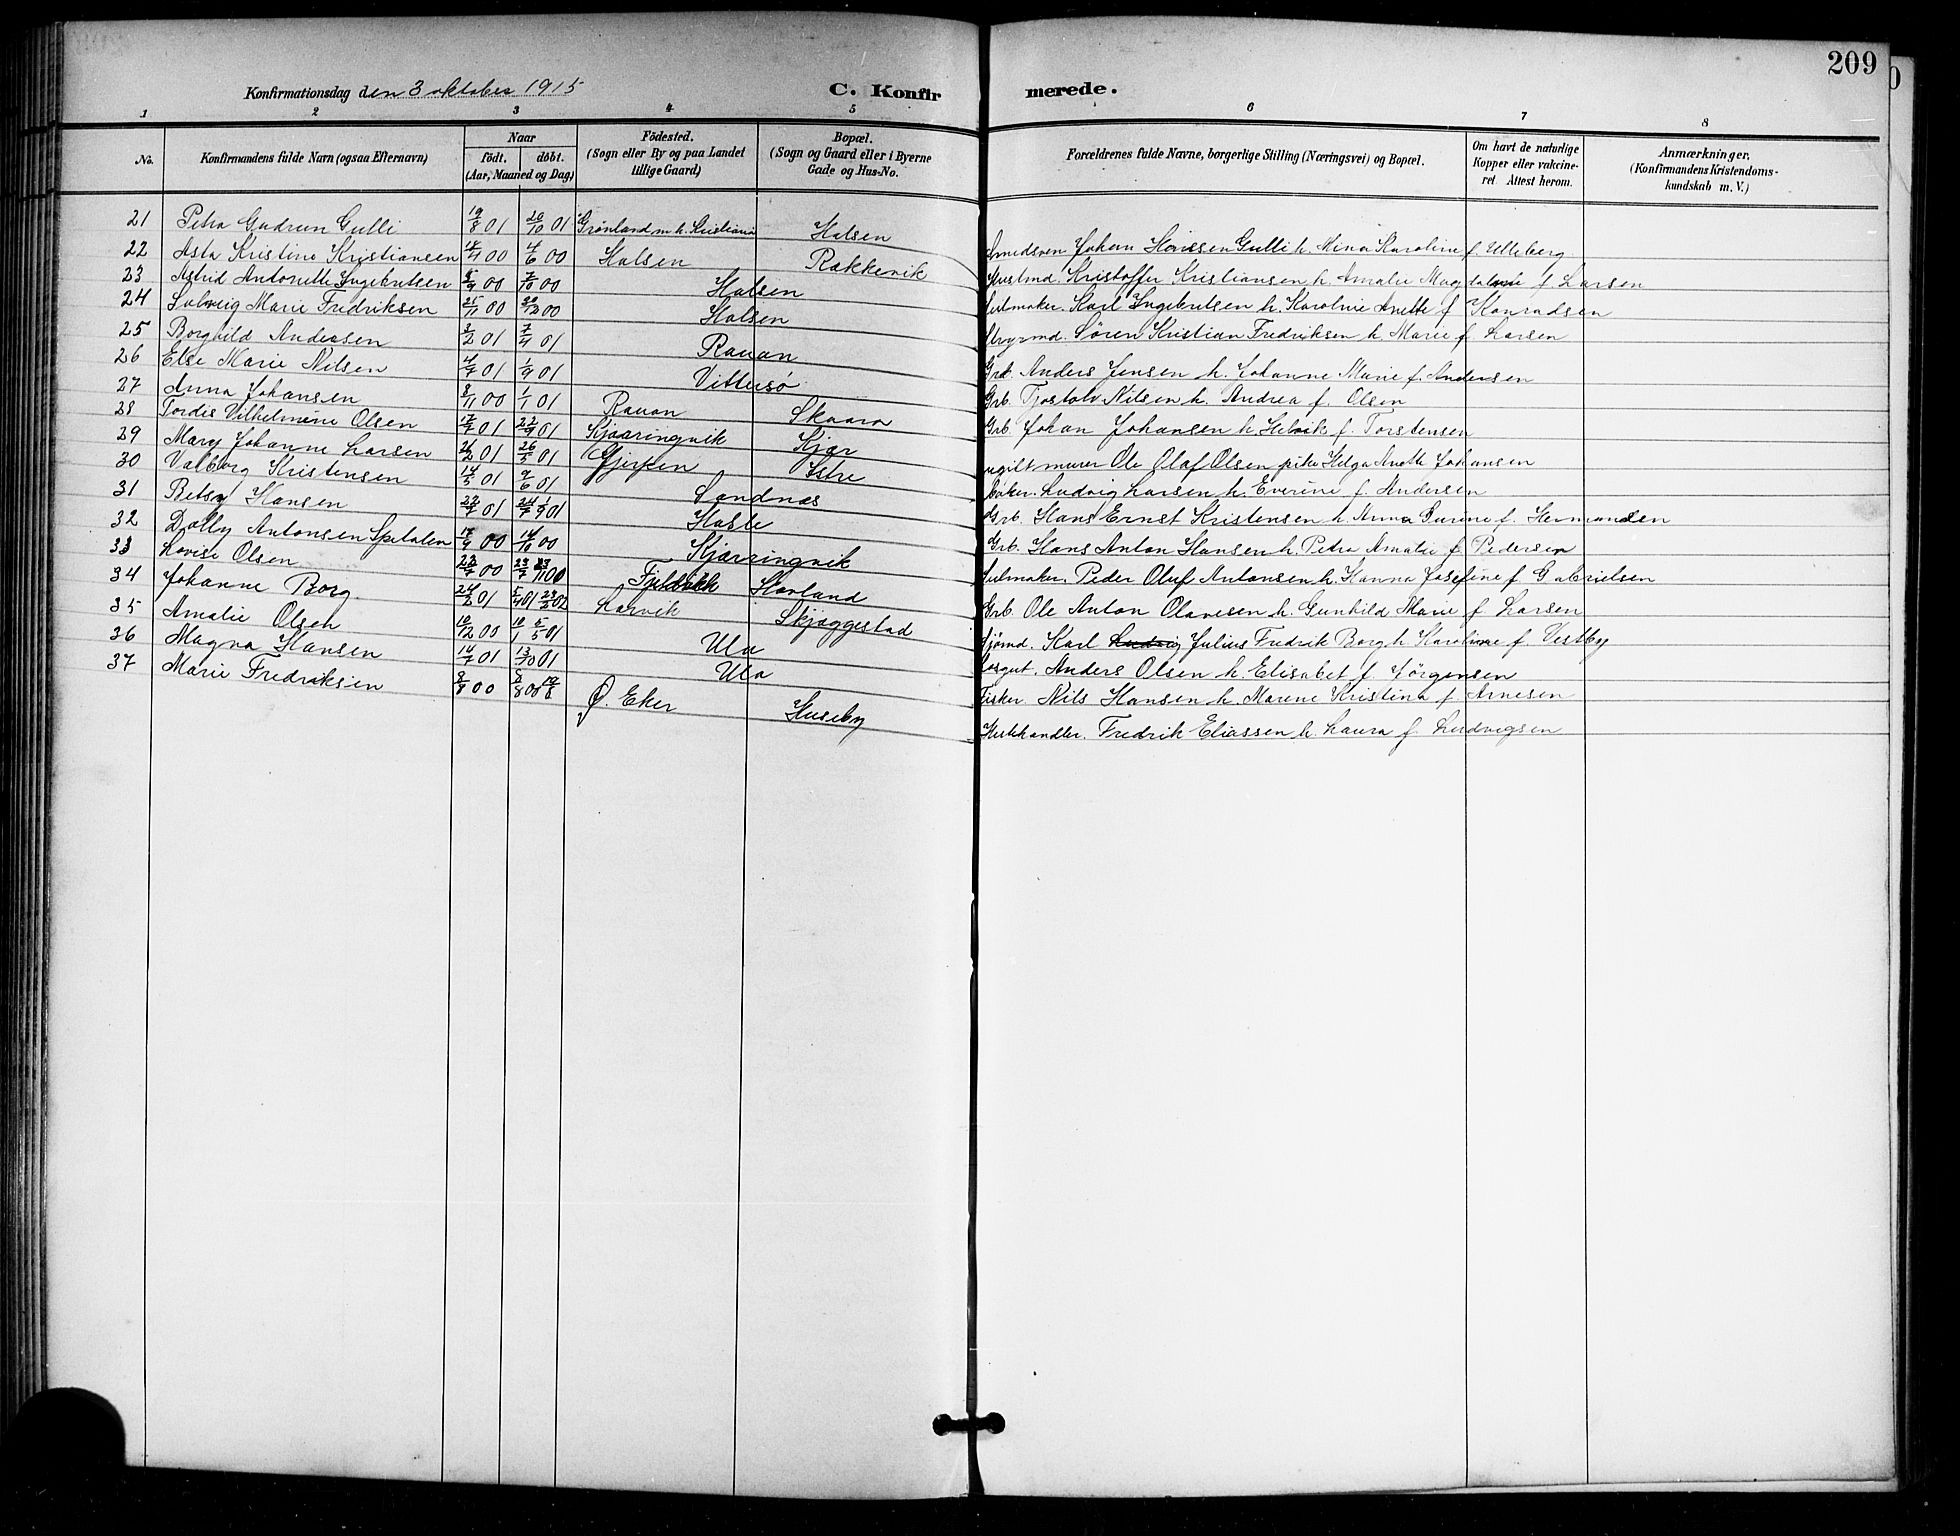 209
Konfirmationsdag den 3 oktober 1915 C. Konfirmerede.
1 2 3 4 5 6 7 8
No. Konfirmandens fulde Navn (ogsaa Efternavn) Naar födt. döbt. (Aar, Maaned og Dag) Födested. (Sogn eller By og paa Landet tillige Gaard) Bopæl. (Sogn og Gaard eller i Byerne Gade og Hus-No. Forældrenes fulde Navne, borgerlige Stilling (Næringsvei) og Bopæl. Om havt de naturlige Kopper eller vakcineret. Attest herom. Anmærkninger, (Konfirmandens Kristendomskundskab m. V.)
21 Petra Gudrun Gulli 19/8 01 20/10 01 Grönland mh. Kristiania Halsen Smedsven Johan Hanssen Gulli h. Mina Karoline f. Ulleberg
22 Asta Kristine Kristiansen /4 00 4/6 00 Halsen Rækkevik Hustmd. Kristoffer Kristiansen h. Amalie Magdalene f Larsen
23 Astrid Antonette Ingebrtsen 5/9 00 7/10 00 Halsen Seilmaker. Karl Ingebrtsen h. Karoline Anette f Konradsen
24 Solveig Marie Fredriksen 25/11 00 30/12 00 Halsen Styrmd. Sören Kristian Fredriksen h. Marie f. Larsen
25 Borghild Andersen 3/2 01 7/4 01 Rauan Grb. Anders Jensen h. Johanne Marie f. Andersen
26 Else Marie Nilsen 4/7 01 1/9 01 Vittersö Grb. Tjostolv Nilsen h. Andrea f. Olsen
27 Anna Johansen 8/11 00 1/1 01 Rauan Skaara Grb. Johan Johansen h. Helvik f. Torstensen
28 Tordis Vilhelmine Olsen 17/7 01 22/9 01 Kjæringvik Kjær ugift murer Ole Olaf Olsen pike Helga Anette Johansen
29 Mary Johanne Larsen 26/2 01 26/5 01 Gjerpen Istre Ludvig Larsen h. Everine f. Andersen
30 Valborg Kristensen 14/5 01 9/6 01 Sandnæs Grb. Hans Ernst Kristensen h. Anna Gurine f. Hermansen
31 Betsy Hansen 01 01 Hasle Grb. Hans Anton Hansen h. Petra Amalie f. Pedersen
32 Dolly Antonsen Spetalen 00 14/10 00 Kjærringvik Seilmaker. Peder Oluf Antonsen h. Hanna Josefine f Gabrielsen
33 Lovise Olsen 00 Fjeldvik Hovland Grb. Ole Anton Olavesen h. Gunhild Marie f Larsen
34 Johanne Borg 24/2 01 5/4 01 Larvik Skjæggestad Sjömd. Karl Ludvig Julius Fredrik Borg h Karoline f. Vestby
35 Amalie Olsen 10/12 00 5/5 01 Ula Losgut. Anders Olsen h. Elisabet f. Jörgensen
36 Magna Hansen 14/7 01 13/10 01 Ula Fisker Nils Hansen h. Marene Kristina f Arnesen
37 Marie Fredriksen 8/8 00 Ø. Eker Huseby Hestehandler. Fredrik Eliassen h. Laura f. Ludvigsen